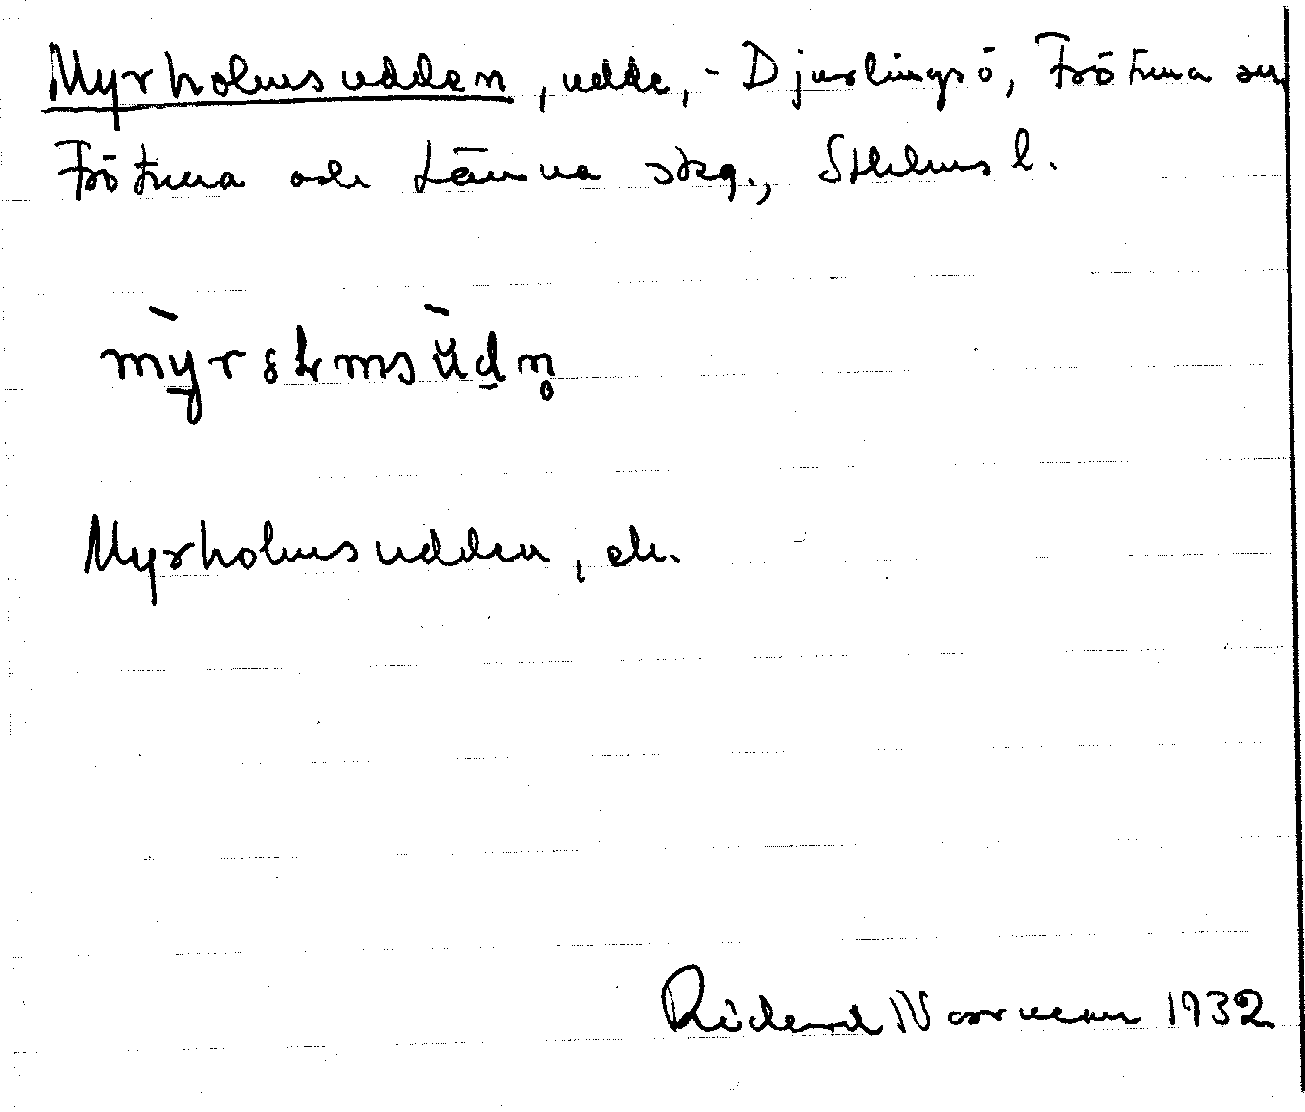 Myrholmsudden, udde, - Djurslingsö, Frötuna sn
Frötuna och Länna skg., Sthlms l.
Myrholmsudden, ek.
Rickard Norrman 1932